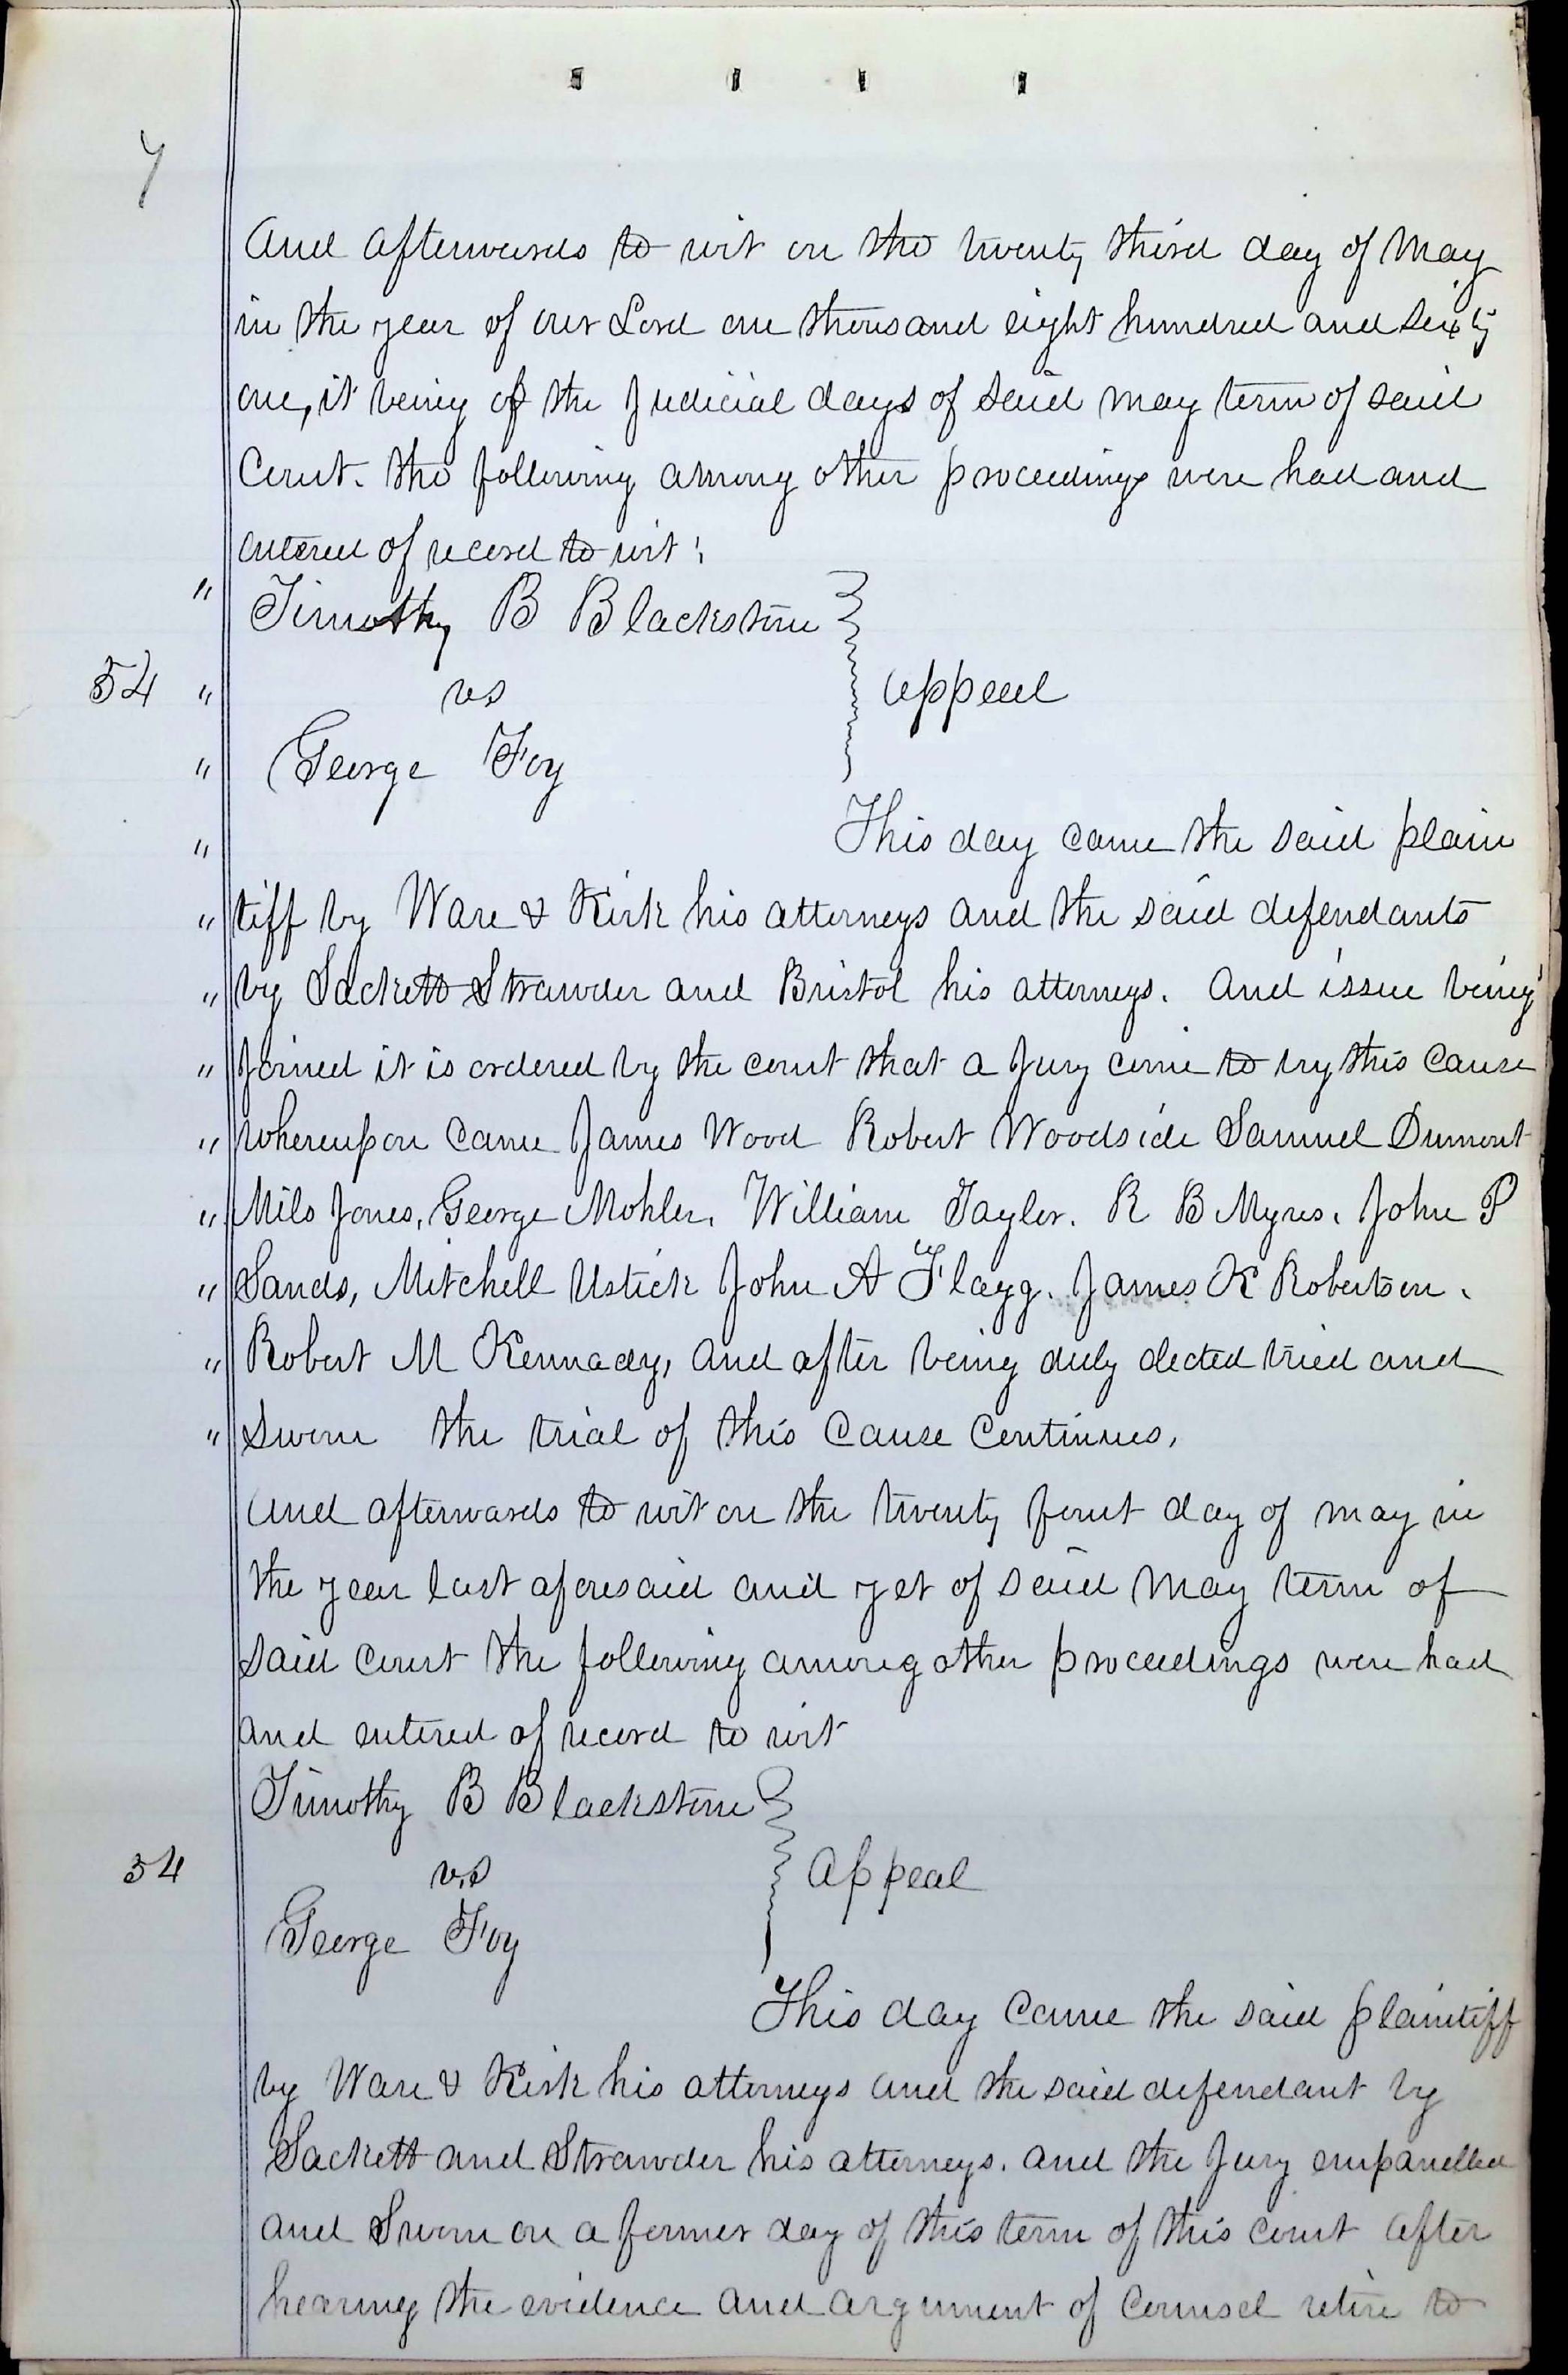 7
And afterwards to wit on the twenty third day of May
in the year of our Lord one thousand eight hundred and sixty
one, it being of the Judicial days of said may term of said
Court. the following among other proceedings were had and
entered of record to wit:
" Timothy B Blackstone
54 " vs Appeal
" George Foy
" This day came the said plain
" tiff by Ware & Kirk his attorneys and the said defendants
" by Sackett Strawder and Bristol his attorneys. And issue being
" Joined it is ordered by the court that a Jury come to try this cause
" whereupon came James Wood Robert Woodside Samuel Dumont
" Milo Jones, George Mohler, William Taylor. R B Myres. John P
" Sands, Mitchell Ustick John A Flagg. James K Robertson.
" Robert M Kennady, and after being duly elected tried and
" sworn the trial of this cause continues,
And afterwards to wit on the twenty fourt day of may in
the year last aforesaid and yet of said May term of
said court the following among other proceedings were had
and entered of record to wit
Timothy B Blackstone
54 vs Appeal
George Foy
This day came the said plaintiff
by Ware & Kirk his attorneys and the said defendant by
Sackett and Strawder his attorneys. and the Jury empanelled
and Sworn on a former day of this term of this court after
hearing the evidence and argument of counsel retire to